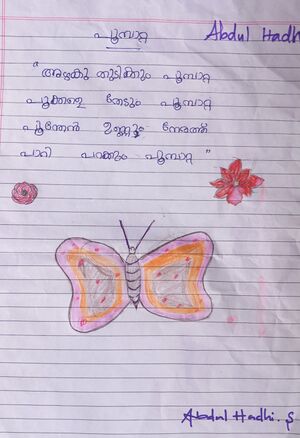 പൂമ്പാറ്റ
Abdul Hadh
"അഴകു തുടിക്കും പൂമ്പാറ്റ
പൂക്കളെ തേടും പൂമ്പാറ്റ
പൂന്തേൻ ഉണ്ണും നേരത്ത്
പാറി പറക്കും പൂമ്പാറ്റ"
Abdul Hadhi. S